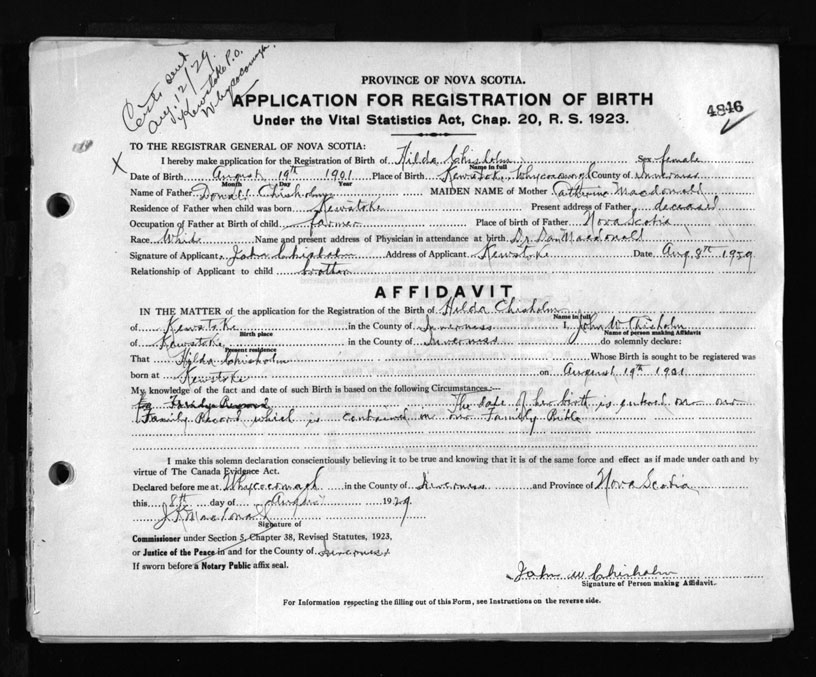 Certs sent
Aug. 12/29.
Kewstoke P.O.
Whycocomagh
PROVINCE OF NOVA SCOTIA.
APPLICATION FOR REGISTRATION OF BIRTH
Under the Vital Statistics Act, Chap. 20, R. S. 1923.
4846
TO THE REGISTRAR GENERAL OF NOVA SCOTIA:
X I hereby make application for the Registration of Birth of Hilda Chisholm Sex female
Name in full
Date of Birth August 19th 1901 Place of Birth Kewstoke, Whycocomagh County of Inverness
Month Day Year
Name of Father Donald Chisholm MAIDEN NAME of Mother Catherine Macdonald
Residence of Father when child was born Kewstoke Present address of Father deceased
Occupation of Father at Birth of child farmer Place of birth of Father Nova Scotia
Race White Name and present address of Physician in attendance at birth Dr. Dan Macdonald
Signature of Applicant John Chisholm Address of Applicant Kewstoke Date Aug 8th 1929
Relationship of Applicant to child brother
AFFIDAVIT
IN THE MATTER of the application for the Registration of the Birth of Hilda Chisholm
Name in full
of Kewstoke in the County of Inverness I, John W Chisholm
Birth place Name of person making Affidavit
of Kewstoke in the County of Inverness do solemnly declare:
Present residence
That Hilda Chisholm Whose Birth is sought to be registered was
born at Kewstoke on August 19th 1901
My knowledge of the fact and date of such Birth is based on the following Circumstances:—
Family Record The date of her birth is entered on our
Family Record which is contained in our Family Bible
I make this solemn declaration conscientiously believing it to be true and knowing that it is of the same force and effect as if made under oath and by
virtue of The Canada Evidence Act.
Declared before me at Whycocomagh in the County of Inverness and Province of Nova Scotia
this 8th day of August 1929
MacDonald
Signature of
Commissioner under Section 5, Chapter 38, Revised Statutes, 1923,
or Justice of the Peace in and for the County of Inverness
If sworn before a Notary Public affix seal.
John W Chisholm
Signature of Person making Affidavit.
For Information respecting the filling out of this Form, see Instructions on the reverse side.